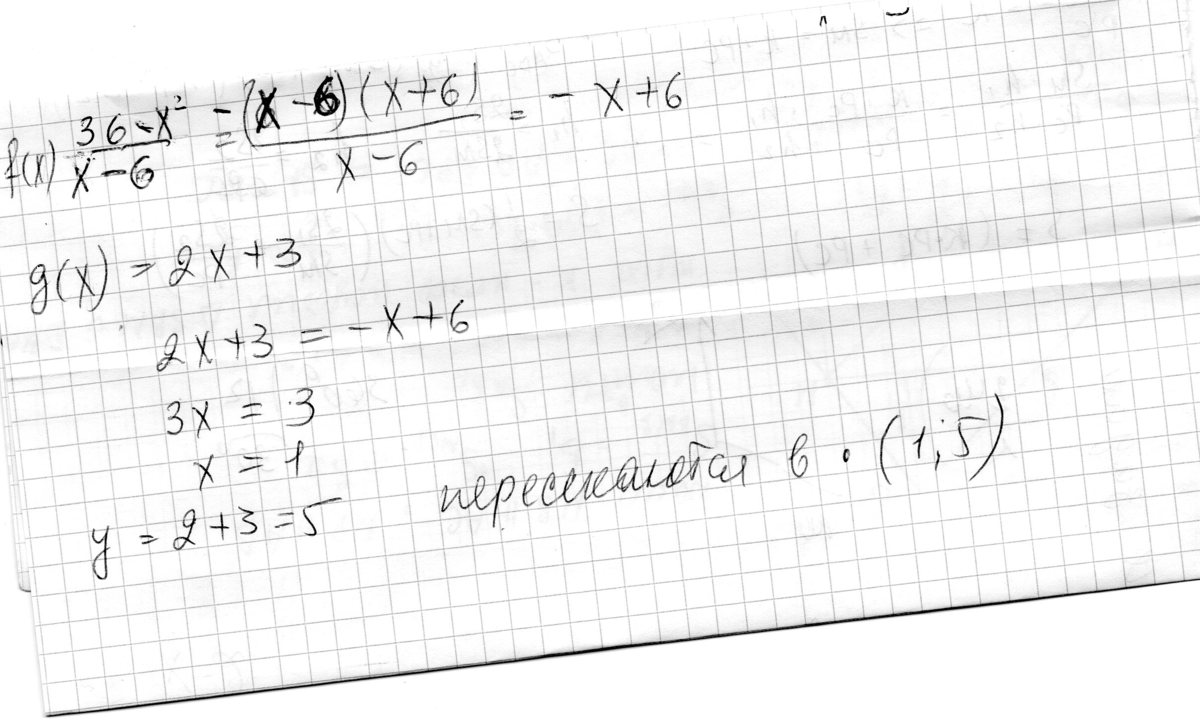 f(x) (36-x²)/(x-6) = -(x-6)(x+6)/(x-6) = - x+6
g(x) = 2x+3
2x+3 = -x+6
3x = 3
x = 1
y = 2+3=5
пересекаются в • (1;5)